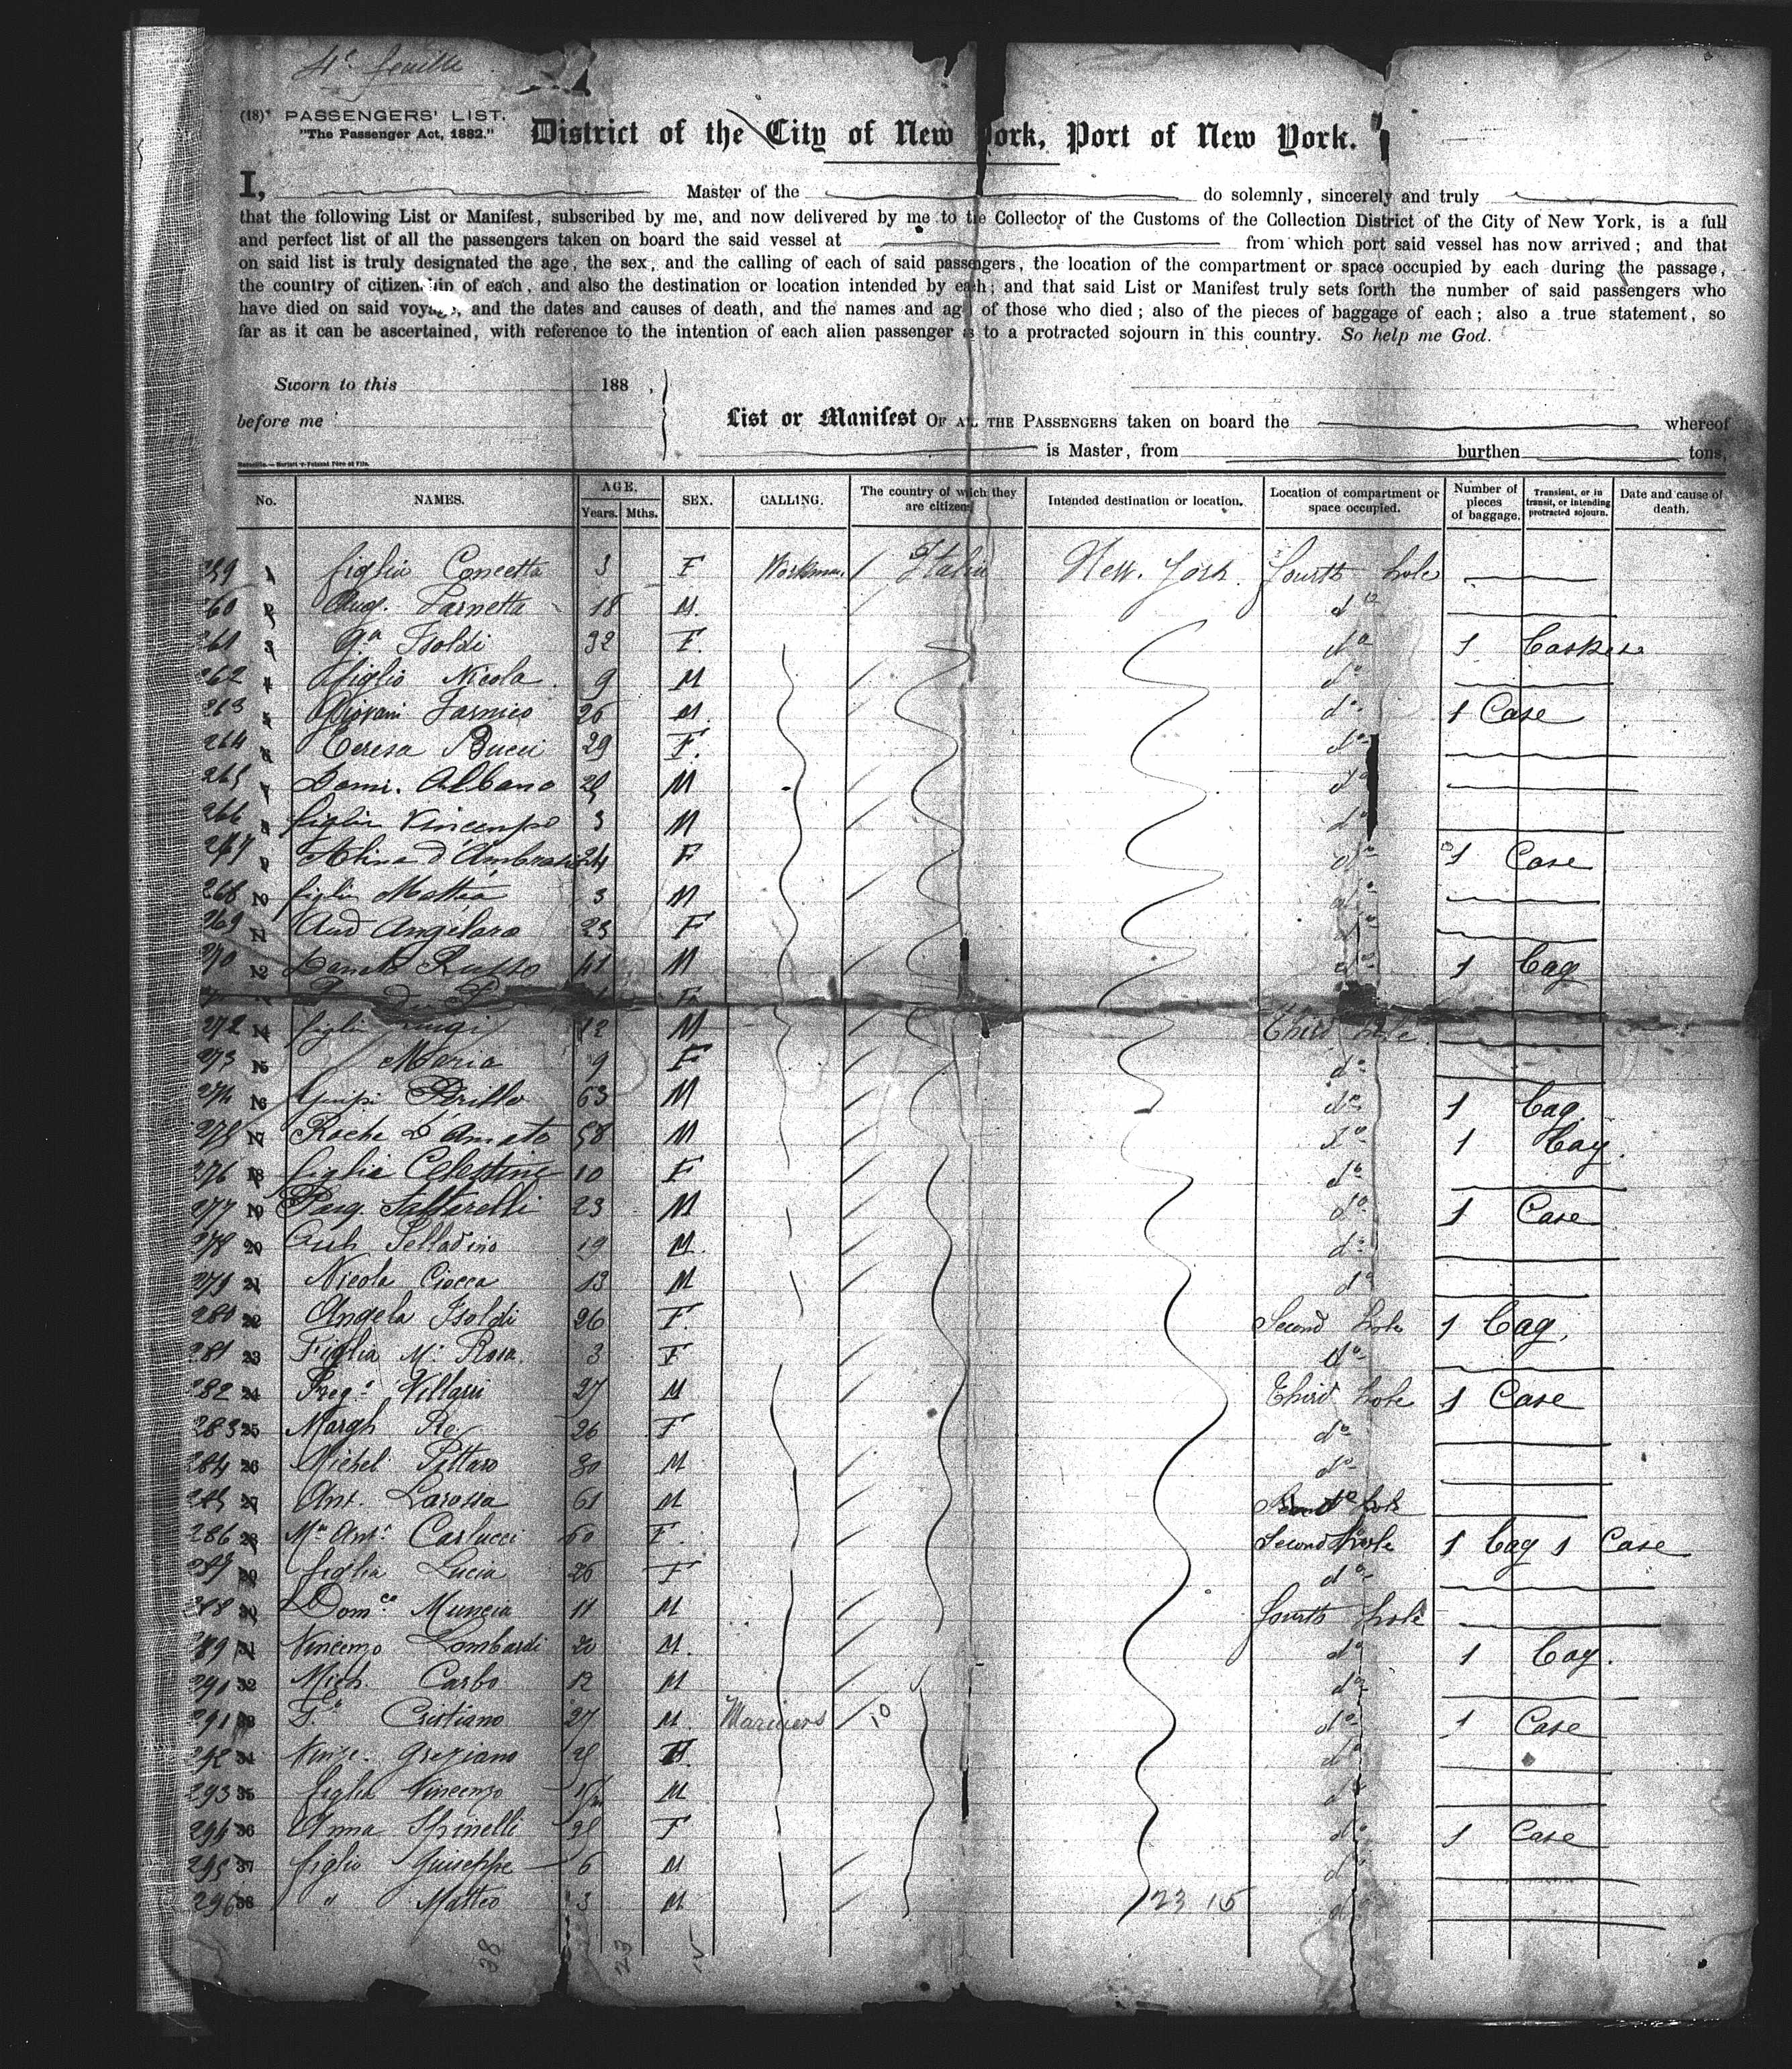 4e feuille
(18) PASSENGERS' LIST.
"The Passenger Act, 1882."
District of the City of New York, Port of New York.
I, Master of the do solemnly, sincerely and truly
that the following List or Manifest, subscribed by me, and now delivered by me to the Collector of the Customs of the Collection District of the City of New York, is a full
and perfect list of all the passengers taken on board the said vessel at from which port said vessel has now arrived; and that
on said list is truly designated the age, the sex, and the calling of each of said passengers, the location of the compartment or space occupied by each during the passage,
the country of citizen in of each, and also the destination or location intended by each; and that said List or Manifest truly sets forth the number of said passengers who
have died on said voyage, and the dates and causes of death, and the names and age of those who died; also of the pieces of baggage of each; also a true statement, so
far as it can be ascertained, with reference to the intention of each alien passenger as to a protracted sojourn in this country. So help me God.
Sworn to this 188 ,
before me
List or Manifest OF AL THE PASSENGERS taken on board the whereof
is Master, from burthen tons,
No. NAMES. AGE. Years. Mths. SEX. CALLING. The country of which they are citizens Intended destination or location. Location of compartment or space occupied. Number of pieces of baggage. Transient, or in transit, or intending protracted sojourn. Date and cause of death.
259 1 figlia Concetta 3 F Workman Italia New. York. fourth hole
260 2 Farnetta 18 M. do
261 3 Isoldi 32 F. do 1
262 4 figlio Nicola 9 M do
263 5 Giovani 26 M. do 1 Case
264 6 Teresa Bucci 29 F. do
265 7 Domi. Albano M do
266 8 figlio Vincenzo 3 M do
267 9 d'Ambrasio 24 F do 1 Case
268 10 figlio Mattea 3 M do
269 11 Angelaro 23 F do
270 12 Donato Russo 41 M do 1 Cag
272 14 figlio Luigi 12 M Third hole
273 15 Maria 9 F do
274 16 Brillo 63 M do 1 Cag.
275 17 D'Amato 58 M do 1 Cag.
276 18 figlia Celestine 10 F do
277 19 Pasq. Saltarelli 23 M do 1 Case
278 20 Pelladino 19 M. do
279 21 Nicola Ciocca 13 M do
280 22 Angela Isoldi 26 F. Second hole 1 Cag.
281 23 Figlia Ma. Rosa. 3 F do
282 24 Villani 27 M Third hole 1 Case
283 25 Margh Re 26 F do
284 26 Michel Pittaro 30 M do
285 27 Ant. Larossa 61 M hole
286 28 Ma Anta Carlucci 60 F. Second hole 1 Cag 1 Case
287 29 figlia Lucia 26 F do
288 30 Domco Muncia 11 M fourth hole
289 31 Vincenzo Lombardi 20 M. do 1 Cag.
290 32 Mich. Carbo 12 M do
291 33 Cristiano 27 M. Mariners 10 do 1 Case
292 34 Greziano do
293 35 figlio Vincenzo M do
294 36 Anna Spinelli F do 1 Case
295 37 figlio Guiseppe 6 M do
296 38 " Matteo 3 M. 23 15 do
38 23 15